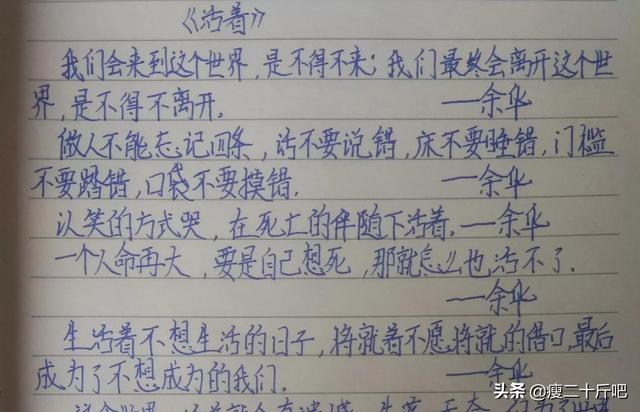 《活着》
我们会来到这个世界,是不得不来;我们最终会离开这个世
界,是不得不离开。
——余华
做人不能忘记四条,话不要说错,床不要睡错,门槛
不要踏错,口袋不要摸错。
——余华
以笑的方式哭,在死亡的伴随下活着。——余华
一个人命再大,要是自己想死,那就怎么也活不了。
——余华
生活着不想生活的日子,将就着不愿将就的借口,最后
成为了不想成为的我们。
——余华
头条 @瘦二十斤吧